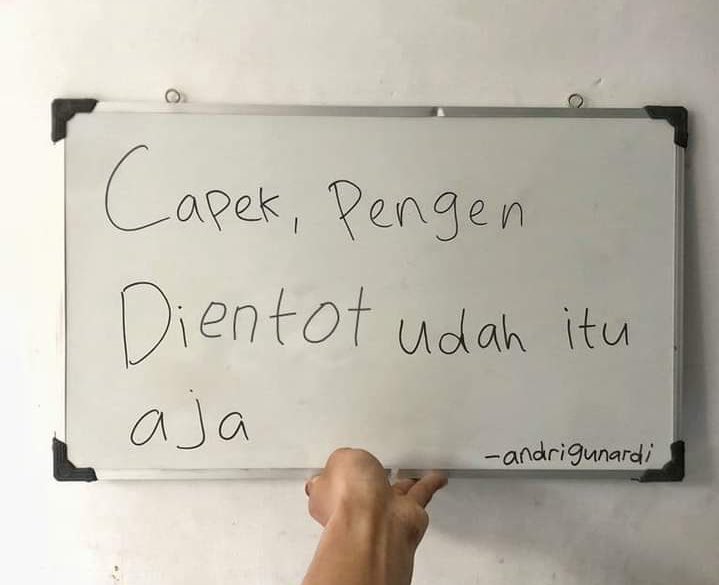 Capek, Pengen
Dientot udah itu
aja
-andrigunardi